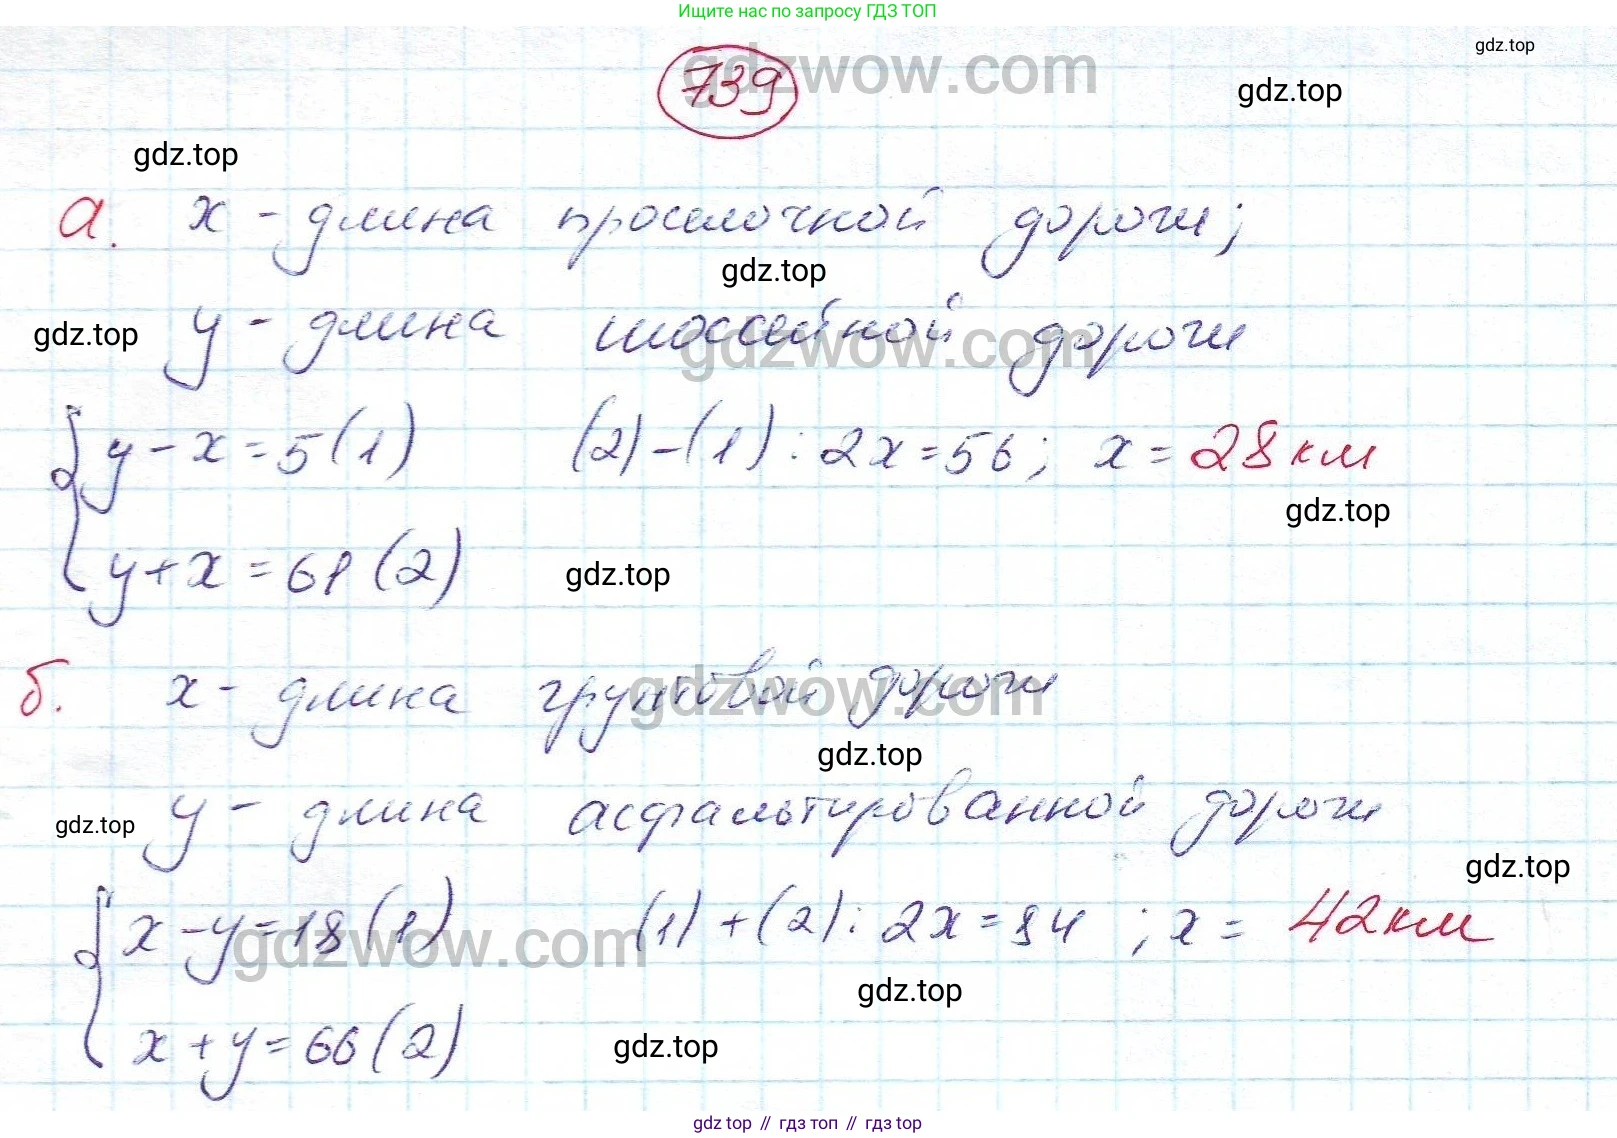 Ищите нас по запросу ГДЗ ТОП
gdz.top
739
gdzwow.com
gdz.top
gdz.top
а. х - длина проселочной дороги;
gdz.top
gdz.top
у - длина шоссейной дороги
gdzwow.com
у - х = 5 (1) (2) - (1): 2х = 56; х = 28 км
gdz.top
у + х = 61 (2)
gdz.top
б. х - длина грунтовой дороги
gdzwow.com
gdz.top
у - длина асфальтированной дороги
gdz.top
gdz.top
х - у = 18 (1) (1) + (2): 2х = 84; х = 42 км
gdzwow.com
gdz.top
х + у = 66 (2)
gdz.top
gdz top // гдз топ // гдз top